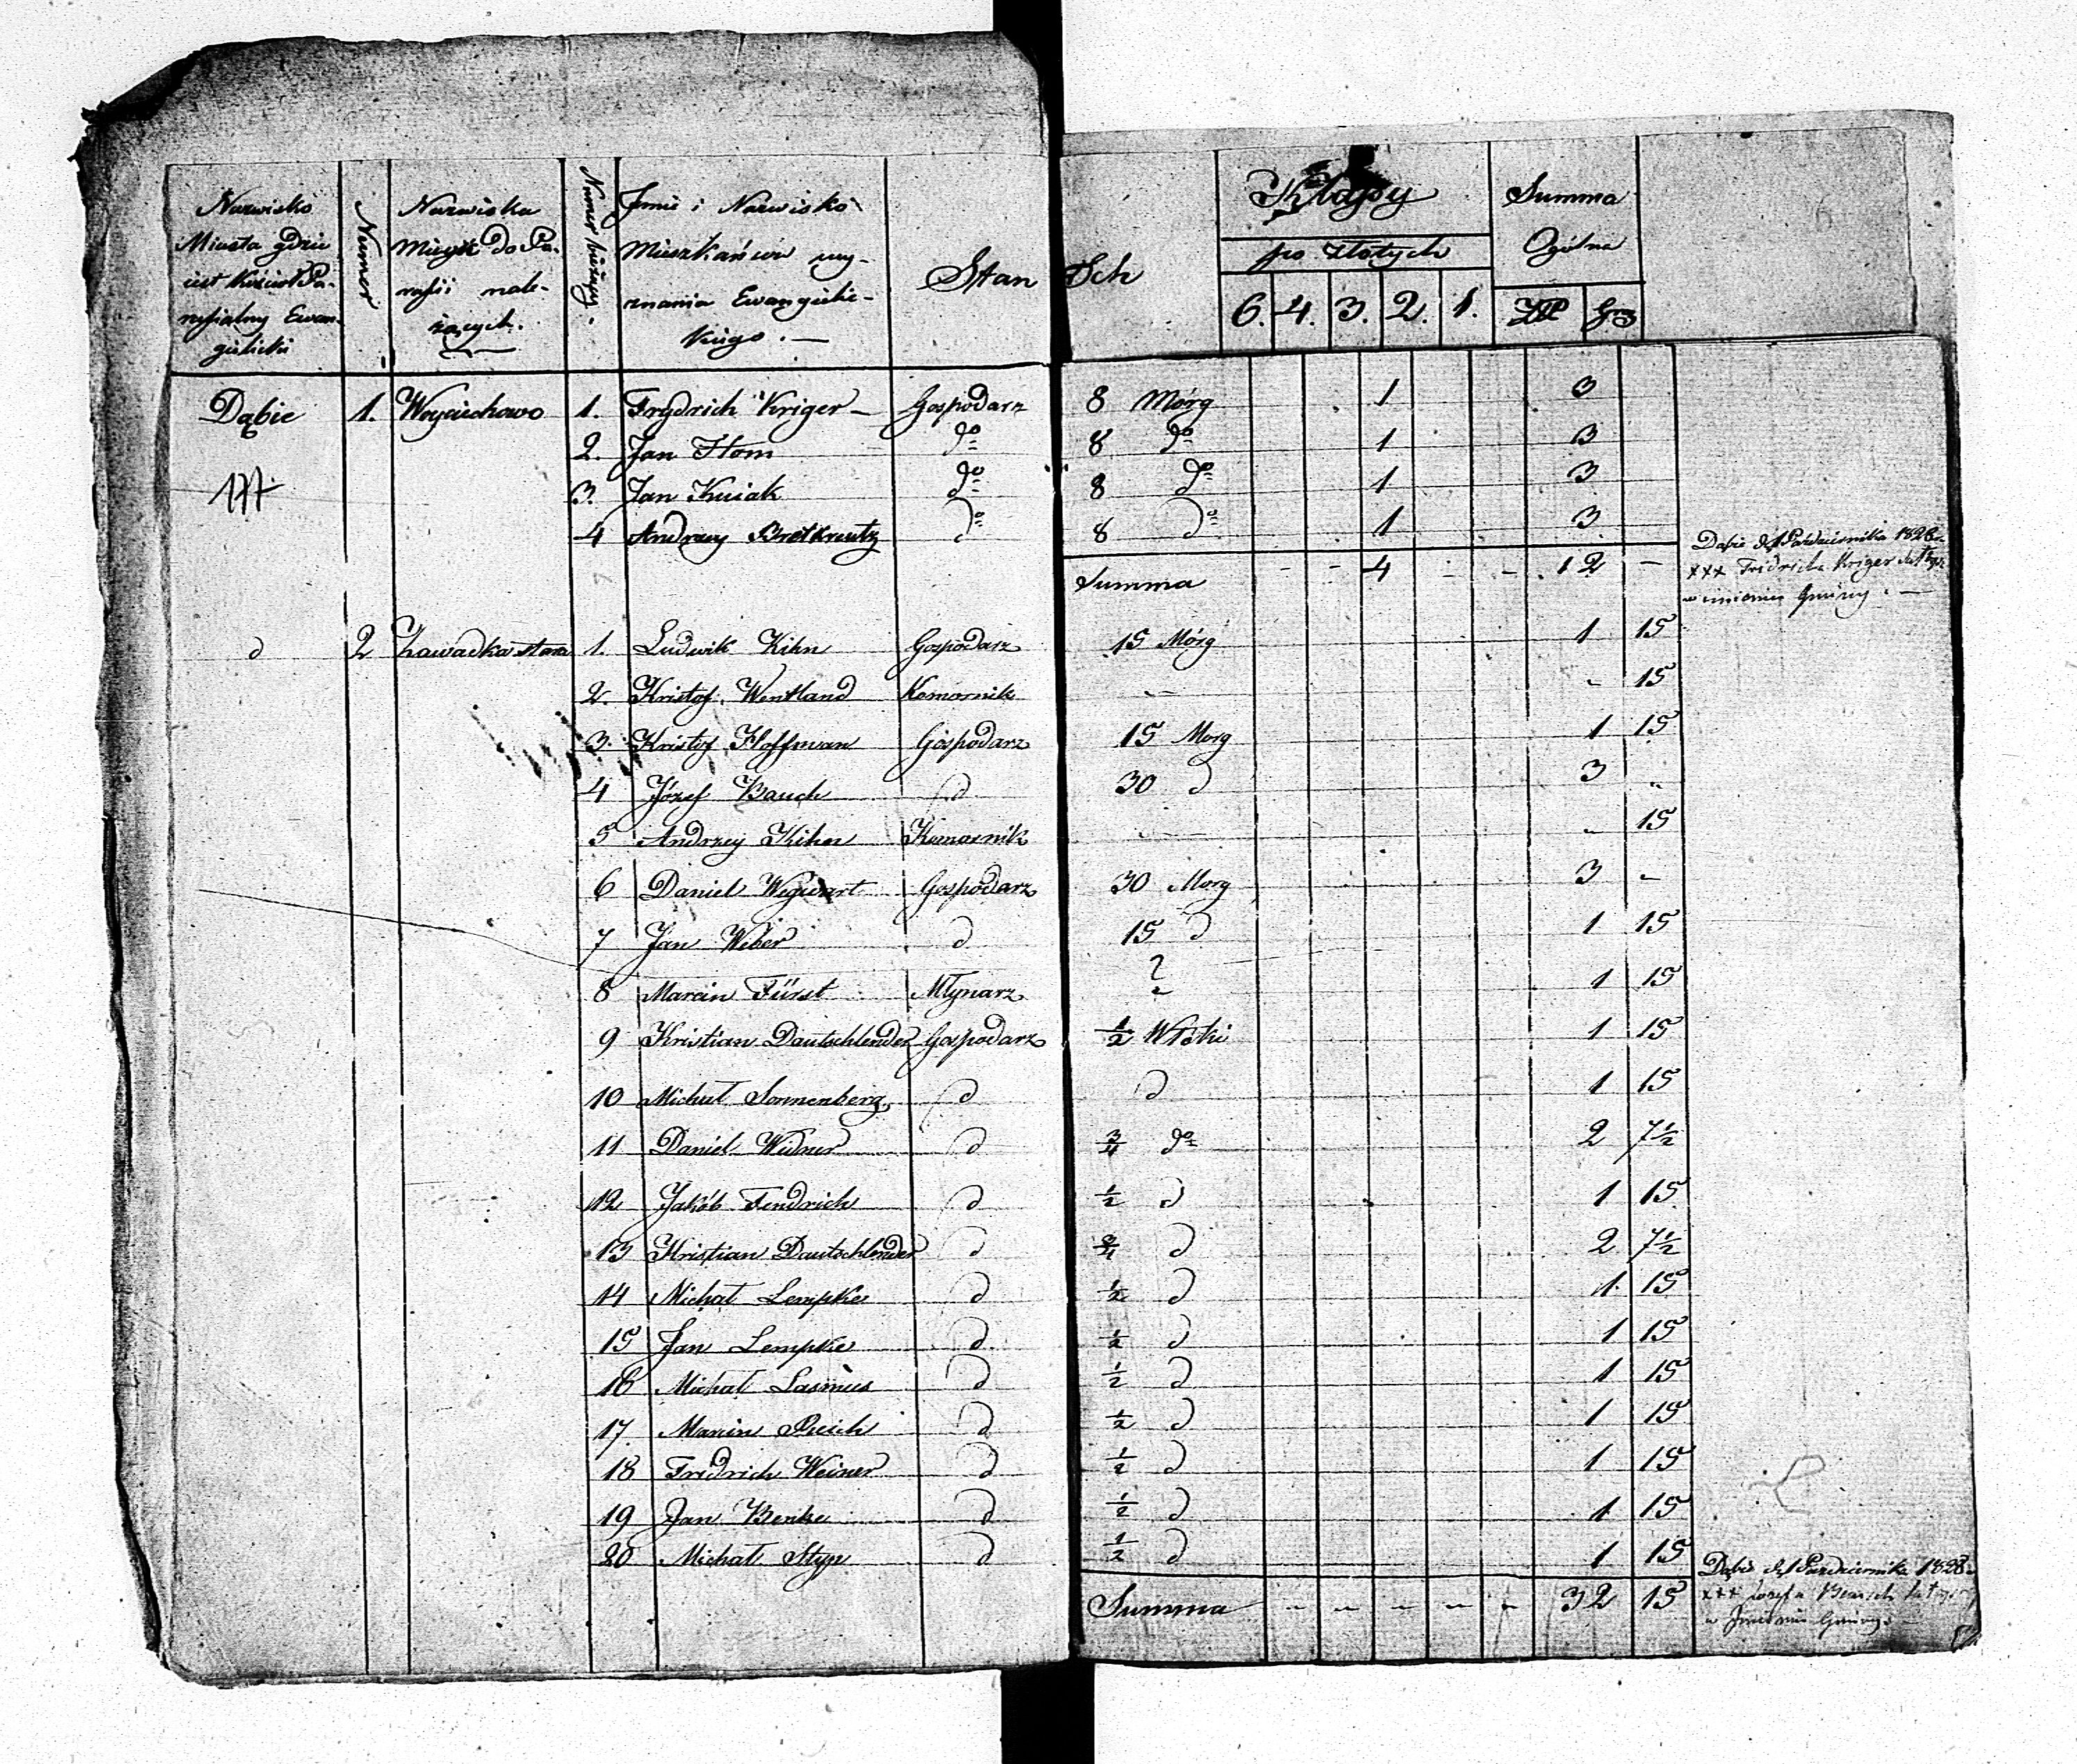 Nazwisko Miasta gdzie iest Kościoł Parafialny Ewangielicki
Numer
Nazwiska Mieysc do Parafii należących.
Numer bieżący.
Imie i Nazwisko Mieszkańców wyznania Ewangielickiego.
Stan
Ich
Klassy
po złotych
6. 4. 3. 2. 1.
Summa Ogólna
ZłP Grz
Dąbie 1. Woyciechowo 1. Frydrich Kriger Gospodarz 8 Mórg 1 3
2. Jan Hom do 8 do 1 3
3. Jan Kuiak do 8 do 1 3
4 Andrzey Bretkreutz do 8 do 1 3
Summa - - 4 - - 12 -
Dąbie d. 1 Października 1828
xxx Fridrich Kriger
w imieniu Gminy
d 2 Zawadka stara 1. Ludwik Kihn Gospodarz 15 Mórg 1 15
2. Kristof Wentland Komornik - - 15
3. Kristof Hoffman Gospodarz 15 Morg 1 15
4 Józef Bauch d 30 d 3 "
5 Andrzey Kihn Komornik - - 15
6 Daniel Wegwart Gospodarz 30 Morg 3 -
7 Jan Weber d 15 d 1 15
8 Marcin Fürst Młynarz ? 1 15
9 Kristian Dautschlender Gospodarz 1/2 Włóki 1 15
10 Michał Sonnenberg d d 1 15
11 Daniel Widner d 3/4 do 2 7 1/2
12 Jakób Fendrich d 1/2 d 1 15
13 Kristian Dautschlender d 3/4 d 2 7 1/2
14 Michał Lempke d 1/2 d 1 15
15 Jan Lempke d 1/2 d 1 15
16 Michał Lasmus d 1/2 d 1 15
17. Marcin Reich d 1/2 d 1 15
18 Fridrich Weiner d 1/2 d 1 15
19 Jan Benke d 1/2 d 1 15
20 Michał Styp d 1/2 d 1 15
Summa - - - - - 32 15
Dąbie d. 1 Października 1828
xxx Józef
w Imieniu Gminy